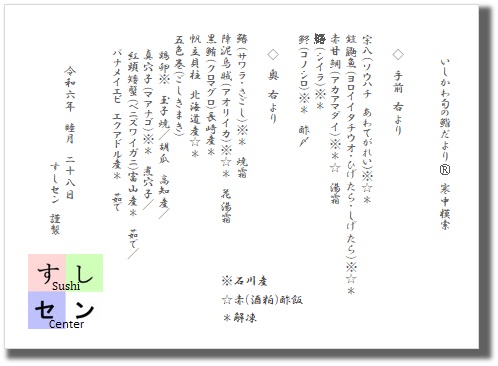 いしかわ旬の鮨だより® 寒中模索
◇ 手前 右より
宗八(ソウハチ あわてがれい)※☆＊
鎧鼬魚(ヨロイイタチウオ・ひげたら・しげたら)※☆＊
赤甘鯛(アカアマダイ)※＊☆ 湯霜
鱪(シイラ)※＊
鮗(コノシロ)※＊ 酢〆
◇ 奥 右より
鰆(サワラ・さごし)※＊ 焼霜
障泥烏賊(アオリイカ)※☆＊ 花湯霜
黒鮪(クロマグロ)長崎産＊
帆立貝柱 北海道産☆＊
五色巻(ごしきまき)
鶏卵※ 玉子焼／胡瓜 高知産／
真穴子(マアナゴ)※＊ 煮穴子／
紅頭矮蟹(ベニズワイガニ)富山産＊ 茹で／
バナメイエビ エクアドル産＊ 茹で
令和六年 睦月 二十八日
すしセン 謹製
※石川産
☆赤(酒粕)酢飯
＊解凍
すし
Sushi
セン
Center